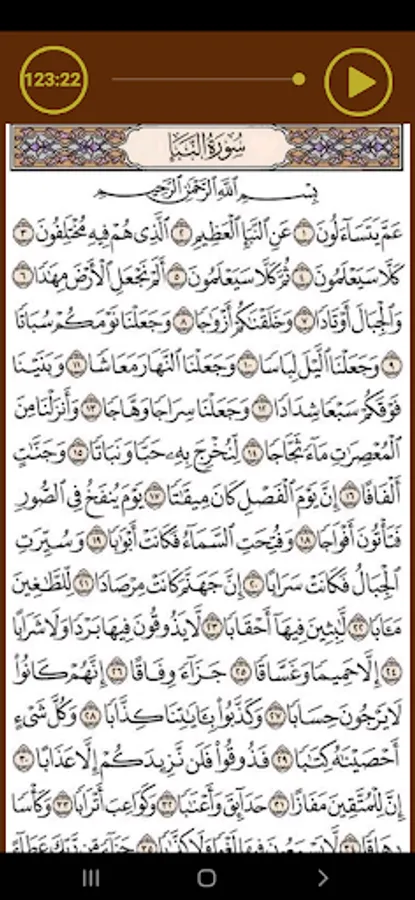 123:22
سُورَةُ النَّبَإِ
بِسْمِ ٱللَّهِ ٱلرَّحْمَٰنِ ٱلرَّحِيمِ
عَمَّ يَتَسَآءَلُونَ ١ عَنِ ٱلنَّبَإِ ٱلْعَظِيمِ ٢ ٱلَّذِى هُمْ فِيهِ مُخْتَلِفُونَ ٣
كَلَّا سَيَعْلَمُونَ ٤ ثُمَّ كَلَّا سَيَعْلَمُونَ ٥ أَلَمْ نَجْعَلِ ٱلْأَرْضَ مِهَٰدًا ٦
وَٱلْجِبَالَ أَوْتَادًا ٧ وَخَلَقْنَٰكُمْ أَزْوَٰجًا ٨ وَجَعَلْنَا نَوْمَكُمْ سُبَاتًا
٩ وَجَعَلْنَا ٱلَّيْلَ لِبَاسًا ١٠ وَجَعَلْنَا ٱلنَّهَارَ مَعَاشًا ١١ وَبَنَيْنَا
فَوْقَكُمْ سَبْعًا شِدَادًا ١٢ وَجَعَلْنَا سِرَاجًا وَهَّاجًا ١٣ وَأَنزَلْنَا مِنَ
ٱلْمُعْصِرَٰتِ مَآءً ثَجَّاجًا ١٤ لِّنُخْرِجَ بِهِۦ حَبًّا وَنَبَاتًا ١٥ وَجَنَّٰتٍ
أَلْفَافًا ١٦ إِنَّ يَوْمَ ٱلْفَصْلِ كَانَ مِيقَٰتًا ١٧ يَوْمَ يُنفَخُ فِى ٱلصُّورِ
فَتَأْتُونَ أَفْوَاجًا ١٨ وَفُتِحَتِ ٱلسَّمَآءُ فَكَانَتْ أَبْوَٰبًا ١٩ وَسُيِّرَتِ
ٱلْجِبَالُ فَكَانَتْ سَرَابًا ٢٠ إِنَّ جَهَنَّمَ كَانَتْ مِرْصَادًا ٢١ لِّلطَّٰغِينَ
مَـَٔابًا ٢٢ لَّٰبِثِينَ فِيهَآ أَحْقَابًا ٢٣ لَّا يَذُوقُونَ فِيهَا بَرْدًا وَلَا شَرَابًا
٢٤ إِلَّا حَمِيمًا وَغَسَّاقًا ٢٥ جَزَآءً وِفَاقًا ٢٦ إِنَّهُمْ كَانُوا۟
لَا يَرْجُونَ حِسَابًا ٢٧ وَكَذَّبُوا۟ بِـَٔايَٰتِنَا كِذَّابًا ٢٨ وَكُلَّ شَىْءٍ
أَحْصَيْنَٰهُ كِتَٰبًا ٢٩ فَذُوقُوا۟ فَلَن نَّزِيدَكُمْ إِلَّا عَذَابًا ٣٠
إِنَّ لِلْمُتَّقِينَ مَفَازًا ٣١ حَدَآئِقَ وَأَعْنَٰبًا ٣٢ وَكَوَاعِبَ أَتْرَابًا ٣٣ وَكَأْسًا